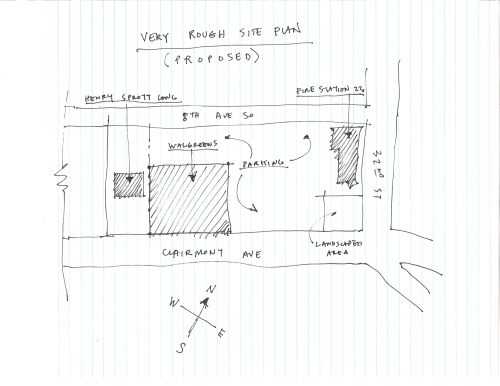 VERY ROUGH SITE PLAN
(PROPOSED)
HENRY SPROTT LONG
FIRE STATION 22
8TH AVE SO
WALGREENS
PARKING
32ND ST
LANDSCAPED
AREA
CLAIRMONT AVE
N
W
E
S